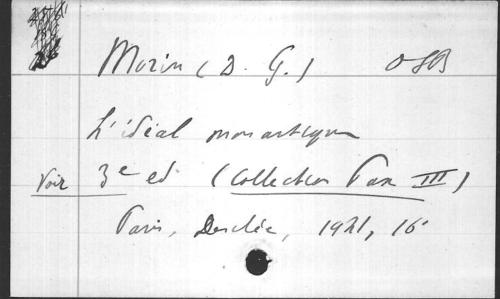 Morin (D. G.) OSB
L'idéal monastique
Voir 3e ed (Collection Pax III)
Paris, Desclée, 1921, 16°